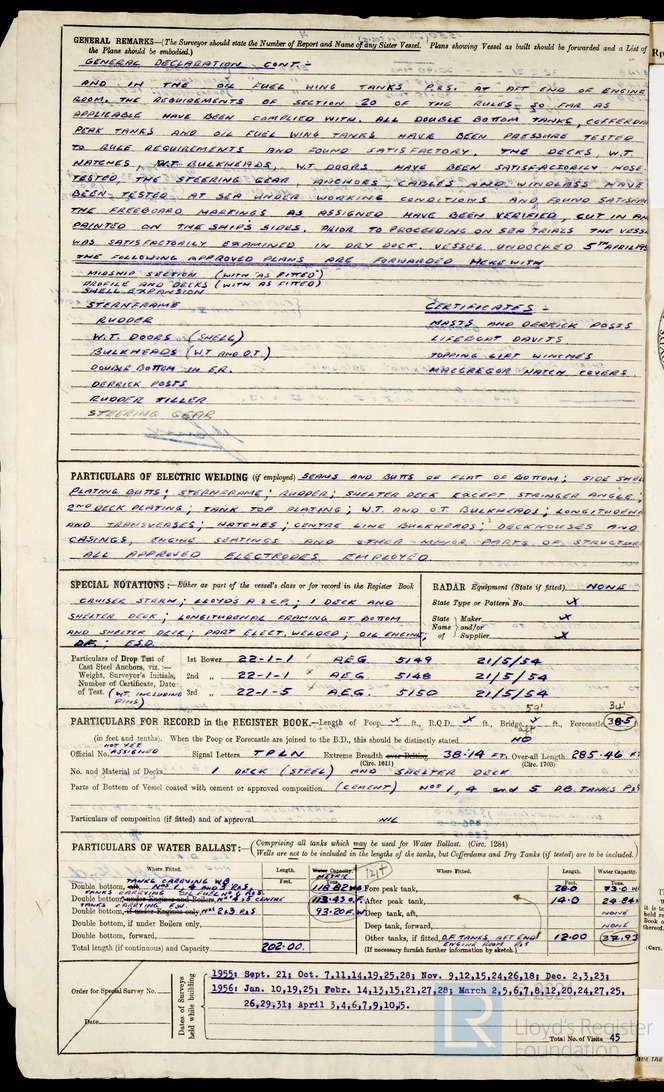 GENERAL REMARKS—(The Surveyor should state the Number of Report and Name of any Sister Vessel. Plans showing Vessel as built should be forwarded and a List of
the Plans should be embodied.)
GENERAL DECLARATION CONT:-
AND IN THE OIL FUEL WING TANKS P&S. AT AFT END OF ENGINE
ROOM, THE REQUIREMENTS OF SECTION 20 OF THE RULES, SO FAR AS
APPLICABLE HAVE BEEN COMPLIED WITH. ALL DOUBLE BOTTOM TANKS, COFFERDA
PEAK TANKS AND OIL FUEL WING TANKS HAVE BEEN PRESSURE TESTED
TO RULE REQUIREMENTS AND FOUND SATISFACTORY. THE DECKS, W.T.
HATCHES, W.T BULKHEADS, W.T. DOORS HAVE BEEN SATISFACTORILY HOSE
TESTED, THE STEERING GEAR, ANCHORS CABLES AND WINDLASS HAVE
BEEN TESTED AT SEA UNDER WORKING CONDITIONS AND FOUND SATISFA
THE FREEBOARD MARKINGS AS ASSIGNED HAVE BEEN VERIFIED, CUT IN AN
PAINTED ON THE SHIP'S SIDES. PRIOR TO PROCEEDING ON SEA TRIALS THE VESS
WAS SATISFACTORILY EXAMINED IN DRY DOCK. VESSEL UNDOCKED 5TH APRIL 195
THE FOLLOWING APPROVED PLANS ARE FORWARDED HEREWITH
MIDSHIP SECTION (WITH "AS FITTED")
PROFILE AND DECKS (WITH AS FITTED)
SHELL EXPANSION
STERNFRAME
RUDDER
W.T. DOORS (SHELL)
BULKHEADS (W.T AND O.T.)
DOUBLE BOTTOM IN E.R.
DERRICK POSTS
RUDDER TILLER
STEERING GEAR
CERTIFICATES :-
MASTS AND DERRICK POSTS
LIFEBOAT DAVITS
TOPPING LIFT WINCHES
MACGREGOR HATCH COVERS
PARTICULARS OF ELECTRIC WELDING (if employed) SEAMS AND BUTTS OF FLAT OF BOTTOM; SIDE SHEL
PLATING BUTTS; STERNFRAME; RUDDER; SHELTER DECK EXCEPT STRINGER ANGLE;
2ND DECK PLATING; TANK TOP PLATING; W.T. AND O.T. BULKHEADS; LONGITUDENA
AND TRANSVERSES; HATCHES; CENTRE LINE BULKHEADS; DECKHOUSES AND
CASINGS, ENGINE SEATINGS AND OTHER MINOR PARTS OF STRUCTURE
ALL APPROVED ELECTRODES EMPLOYED
SPECIAL NOTATIONS:—Either as part of the vessel's class or for record in the Register Book
CRUISER STERN; LLOYD'S A & C.P.; 1 DECK AND
SHELTER DECK; LONGITUDENAL FRAMING AT BOTTOM
AND SHELTER DECK; PART ELECT. WELDED; OIL ENGINE,
DF; ESD
RADAR Equipment (State if fitted) NONE
State Type or Pattern No. X
State Name of Maker and/or Supplier X X
Particulars of Drop Test of
Cast Steel Anchors, viz. :—
Weight, Surveyor's Initials,
Number of Certificate, Date
of Test. (WT. INCLUDING PINS)
1st Bower 22-1-1 AEG. 5149 21/5/54
2nd „ 22-1-1 AEG. 5148 21/5/54
3rd „ 22-1-5 AEG. 5150 21/5/54
59' 34'
PARTICULARS FOR RECORD in the REGISTER BOOK.—Length of Poop X ft., R.Q.D. X ft., Bridge ft., Forecastle 38.5 f
(in feet and tenths). When the Poop or Forecastle are joined to the B.D., this should be distinctly stated NO
Official No. NOT YET ASSIGNED Signal Letters TPLN Extreme Breadth over Belting 38.14 FT. Over-all Length 285.46 F
(Circ. 1611) (Circ. 1703)
No. and Material of Decks 1 DECK (STEEL) AND SHELTER DECK
Parts of Bottom of Vessel coated with cement or approved composition (CEMENT) NOS 1, 4 and 5 D.B. TANKS P&S
Particulars of composition (if fitted) and of approval NIL
PARTICULARS OF WATER BALLAST:—(Comprising all tanks which may be used for Water Ballast. (Circ. 1284)
Wells are not to be included in the lengths of the tanks, but Cofferdams and Dry Tanks (if tested) are to be included.)
Where Fitted. Length. Water Capacity. Where Fitted. Length. Water Capacity.
Feet. METRIC Feet. Tons.
TANKS CARRYING WB
Double bottom, aft, Nos 1, 4 and 5 P&S. 118.82 WB
Double bottom, under Engines and Boilers, CENTRE 113.43 O.F.
TANKS CARRYING F.W.
Double bottom, if under Engines only, Nos 2&3 P&S 93.20 F.W
Double bottom, if under Boilers only,
Double bottom, forward,
Total length (if continuous) and Capacity 202.00.
Fore peak tank, 28.0 93.0
After peak tank, 14.0 24.84
Deep tank, aft, NONE
Deep tank, forward, NONE
Other tanks, if fitted O.F TANKS AFT END ENGINE ROOM P&S 12.00 37.93
(If necessary furnish further information by sketch.)
Order for Special Survey No.
Date
Dates of Surveys held while building
1955: Sept. 21; Oct. 7,11,14,19,25,28; Nov. 9,12,15,24,26,18; Dec. 2,3,23;
1956: Jan. 10,19,25; Febr. 14,13,15,21,27,28; March 2,5,6,7,8,12,20,24,27,25,
26,29,31; April 3,4,6,7,9,10,5.
© 2021
LR
Lloyd's Register
Foundation
Total No. of Visits 45